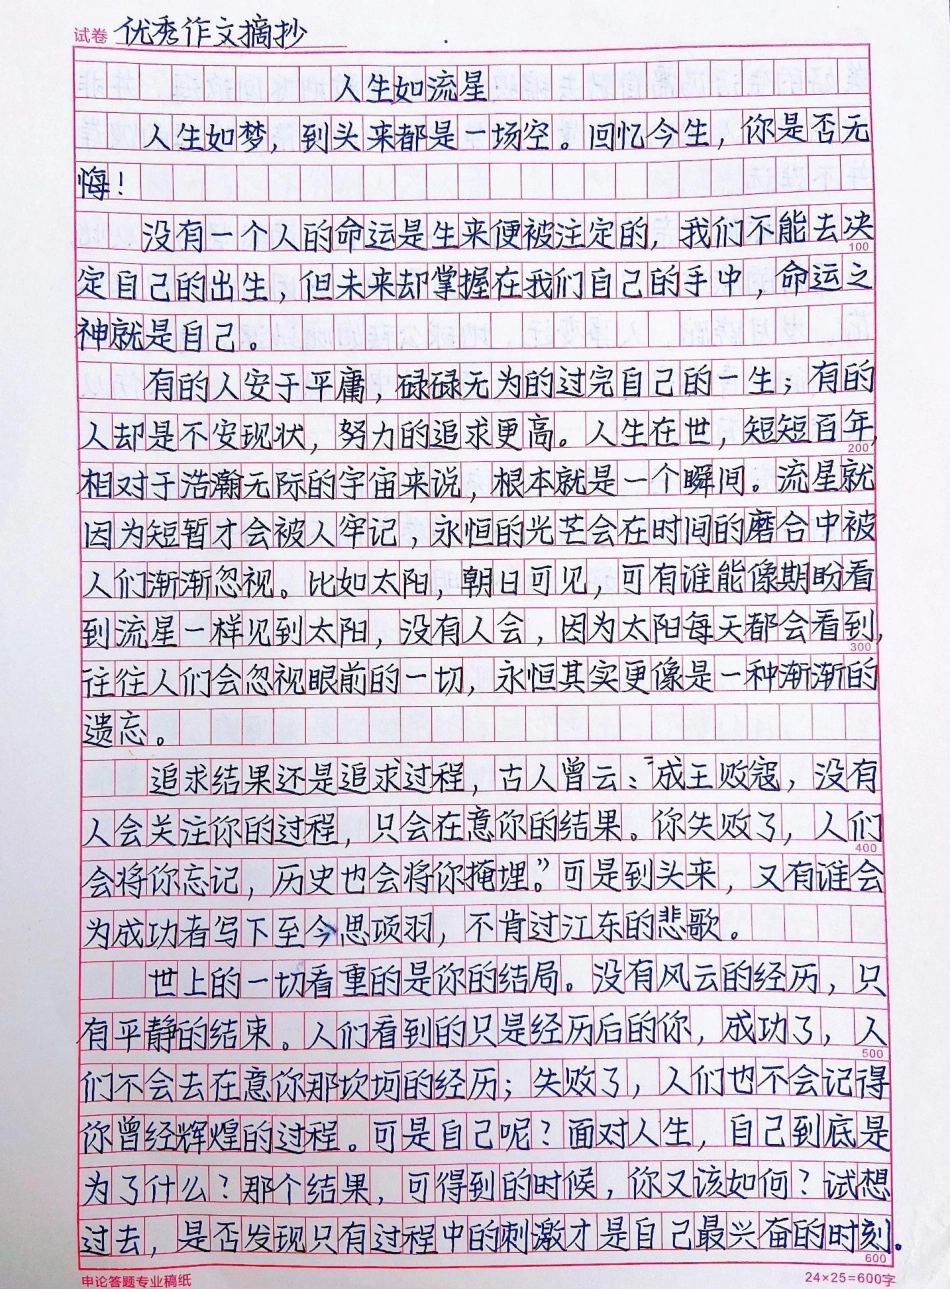 试卷 优秀作文摘抄
人生如流星
人生如梦，到头来都是一场空。回忆今生，你是否无
悔！
没有一个人的命运是生来便被注定的，我们不能去决
100
定自己的出生，但未来却掌握在我们自己的手中，命运之
神就是自己。
有的人安于平庸，碌碌无为的过完自己的一生，有的
人却是不安现状，努力的追求更高。人生在世，短短百年，
200
相对于浩瀚无际的宇宙来说，根本就是一个瞬间。流星就
因为短暂才会被人牢记，永恒的光芒会在时间的磨合中被
人们渐渐忽视。比如太阳，朝日可见，可有谁能像期盼看
到流星一样见到太阳，没有人会，因为太阳每天都会看到，
300
往往人们会忽视眼前的一切，永恒其实更像是一种渐渐的
遗忘。
追求结果还是追求过程，古人曾云：“成王败寇，没有
人会关注你的过程，只会在意你的结果。你失败了，人们
400
会将你忘记，历史也会将你掩埋。”可是到头来，又有谁会
为成功者写下至今思项羽，不肯过江东的悲歌。
世上的一切看重的是你的结局。没有风云的经历，只
有平静的结束。人们看到的只是经历后的你，成功了，人
500
们不会去在意你那坎坷的经历；失败了，人们也不会记得
你曾经辉煌的过程。可是自己呢？面对人生，自己到底是
为了什么？那个结果，可得到的时候，你又该如何？试想
过去，是否发现只有过程中的刺激才是自己最兴奋的时刻。
600
申论答题专业稿纸 24×25=600字